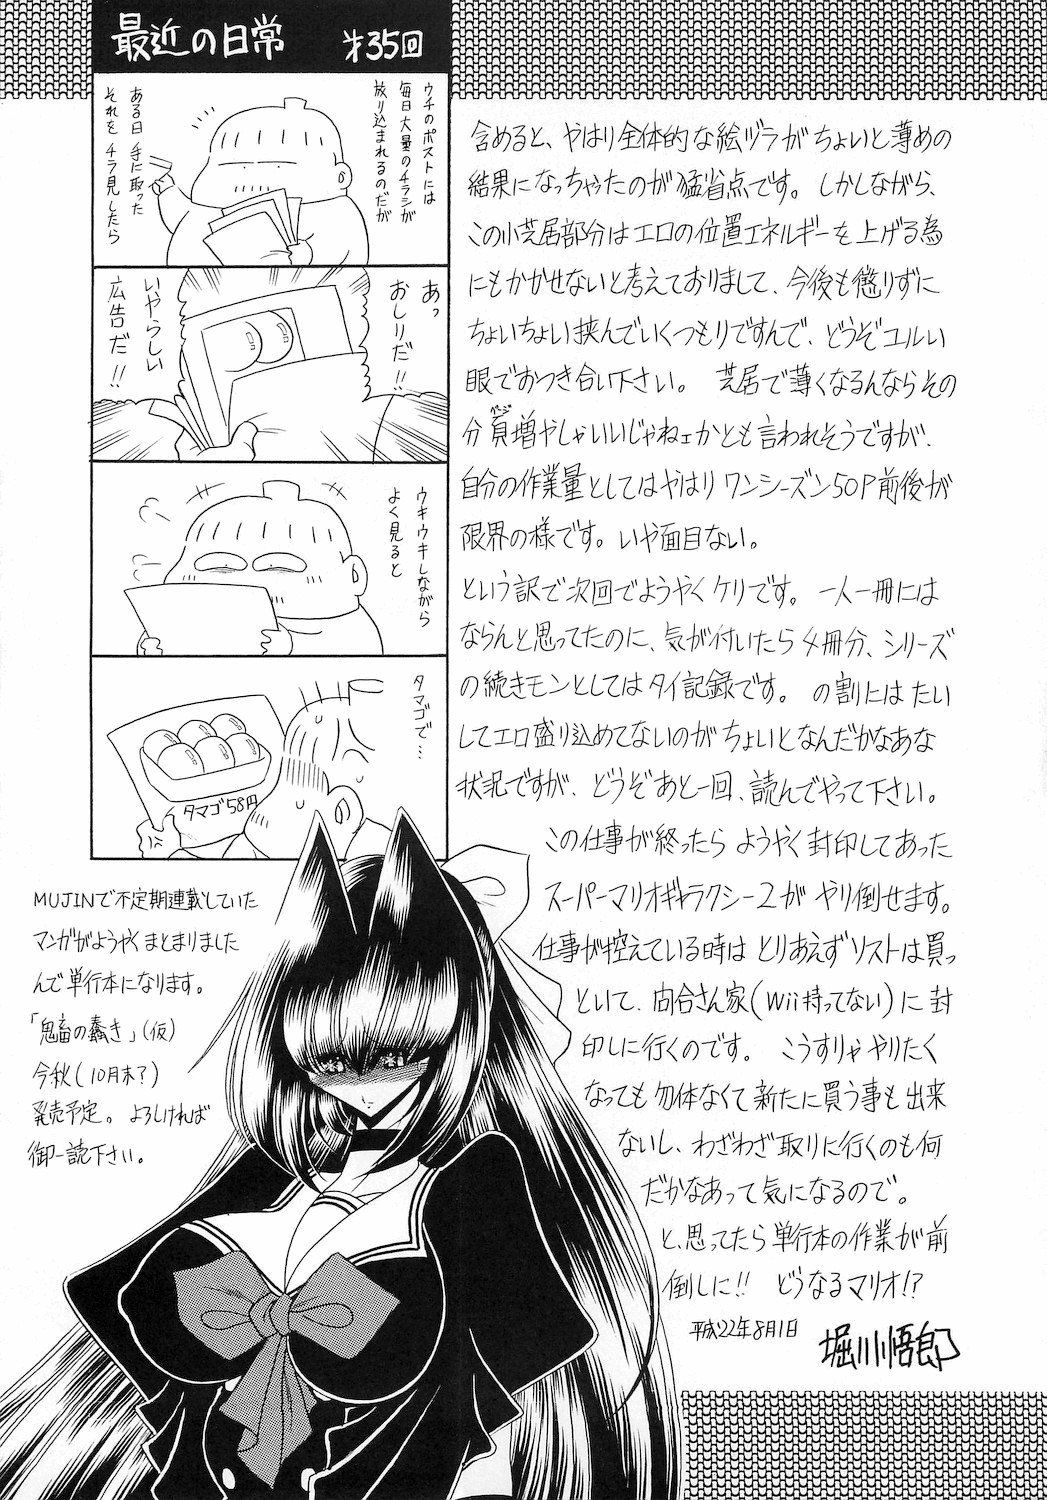 最近の日常　第35回
ウチのポストには
毎日大量のチラシが
放り込まれるのだが
ある日 手に取った
それを チラ見したら
あっ
おしりだ!!
いやらしい
広告だ!!
ウキウキしながら
よく見ると
タマゴで…
タマゴ58円
含めると、やはり全体的な絵ヅラがちょいと薄めの
結果になっちゃったのが猛省点です。しかしながら、
この小芝居部分はエロの位置エネルギーを上げる為
にもかかせないと考えておりまして、今後も懲りずに
ちょいちょい挟んでいくつもりですんで、どうぞユルい
眼でおつき合い下さい。 芝居で薄くなるんならその
分頁増やしゃいいじゃねェかとも言われそうですが、
自分の作業量としてはやはりワンシーズン50P前後が
限界の様です。いや面目ない。
という訳で次回でようやくケリです。一人一冊には
ならんと思ってたのに、気が付いたら4冊分、シリーズ
の続きモンとしてはタイ記録です。の割にはたい
してエロ盛り込めてないのがちょいとなんだかなあな
状況ですが、どうぞあと一回、読んでやって下さい。
この仕事が終ったらようやく封印してあった
スーパーマリオギャラクシー2がやり倒せます。
仕事が控えている時はとりあえずソフトは買っ
といて、向合さん家(Wii持ってない)に封
印しに行くのです。 こうすりゃやりたく
なっても勿体なくて新たに買う事も出来
ないし、わざわざ取りに行くのも何
だかなあって気になるので。
と、思ってたら単行本の作業が前
倒しに!! どうなるマリオ!?
平成22年8月1日
堀川悟郎
MUJINで不定期連載していた
マンガがようやくまとまりました
んで単行本になります。
「鬼畜の蠢き」(仮)
今秋(10月末?)
発売予定。よろしければ
御一読下さい。